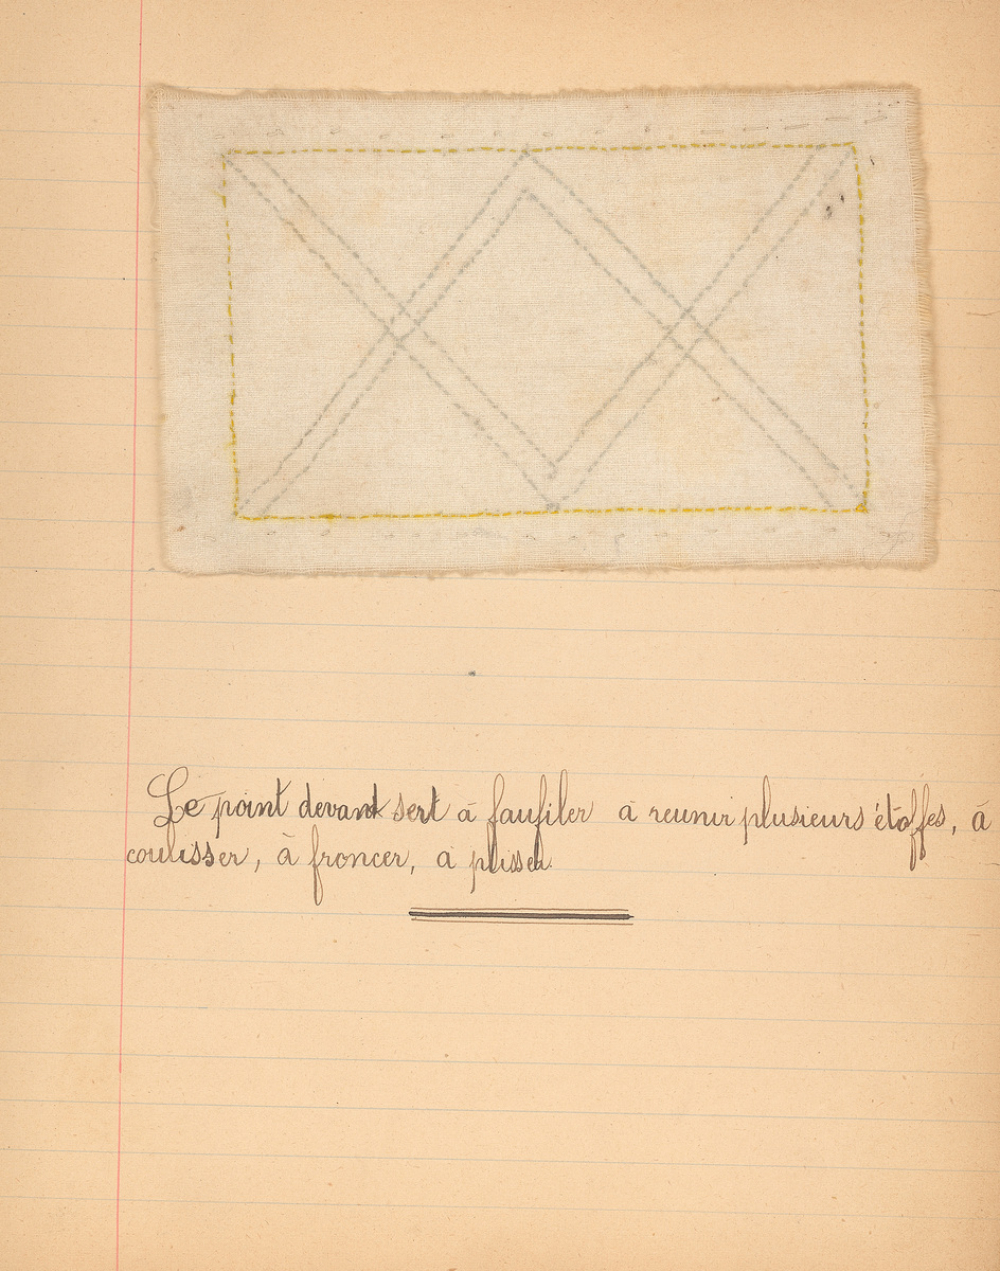 Le point devant sert à faufiler à reunir plusieurs étoffes, à
coulisser, à froncer, à plisser